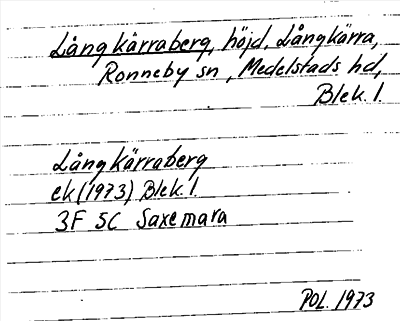 Långkärraberg, höjd, Långkärra,
Ronneby sn, Medelstads hd,
Blek. l.
Långkärraberg
ek (1973) Blek. l.
3F 5C Saxemara
POL. 1973